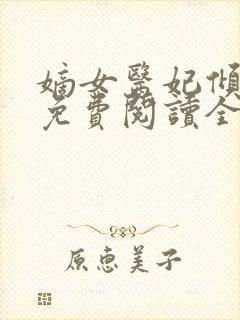 嫡女醫妃傾
免費閱讀全
原惠美子